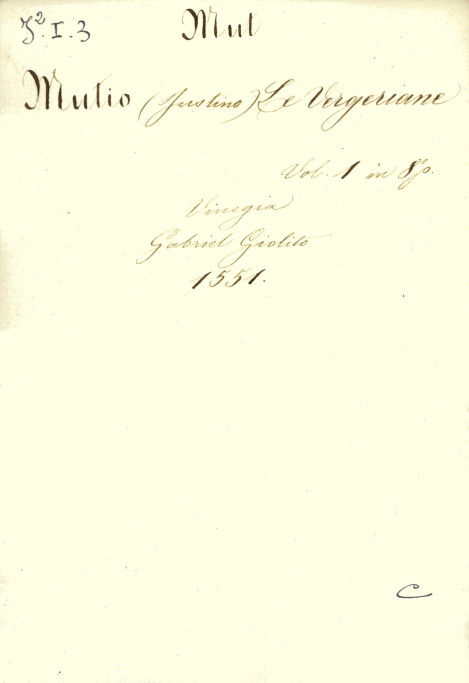 J². I. 3
Mut
Mutio (Justino) Le Vergeriane
Vol. 1 in 8º.
Vinegia
Gabriel Giolito
1551.
C